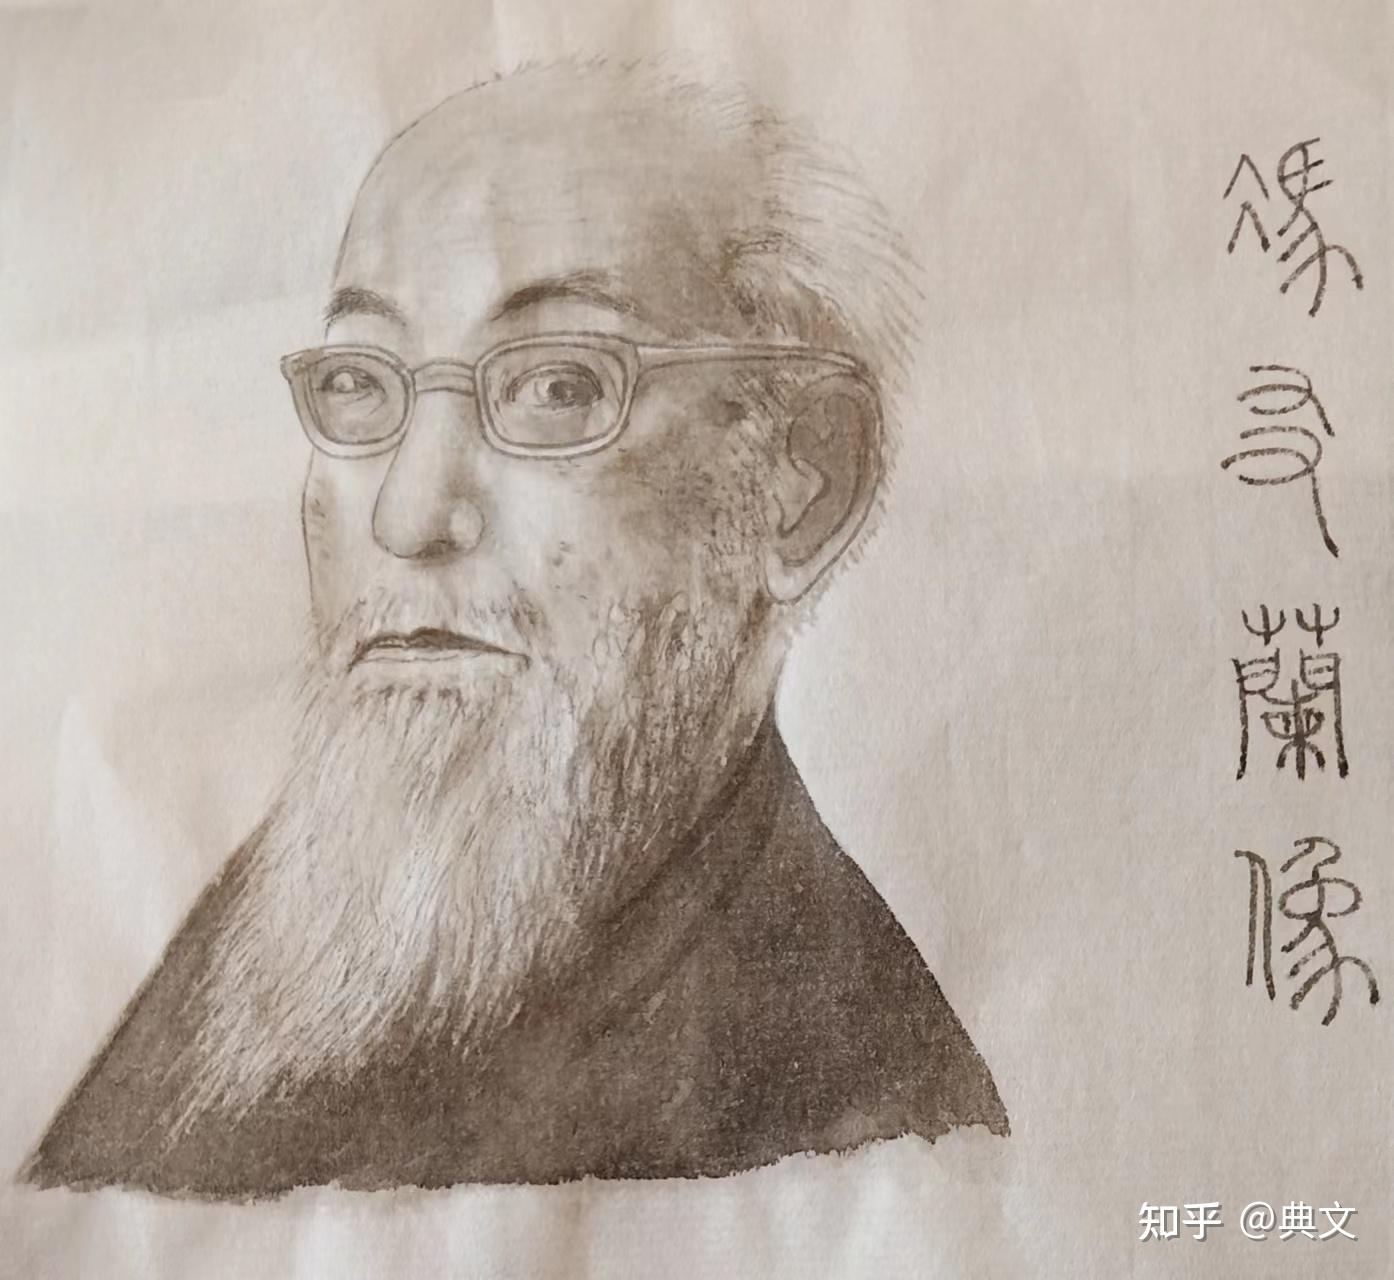 馮友蘭像
知乎 @典文